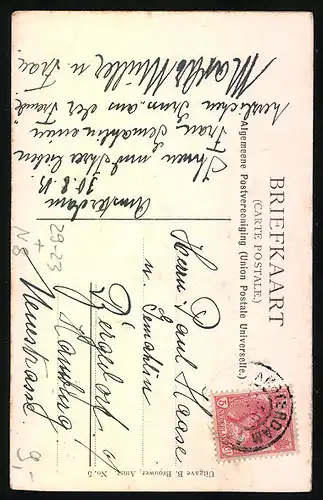 BRIEFKAART
(CARTE POSTALE.)
Algemeene Postvereeniging (Union Postale Universelle.)
Amsterdam
30.8.13
Ihnen und Ihrer lieben
Frau Gemahlin einen
herzlichen Gruss aus der Fremde
Müller u. Frau
Herrn Paul Haase
u. Gemahlin
Bergedorf b/
Hamburg
Neuestrasse
29-23
+
N8
9,-
AMSTERDAM
5
Uitgave B. Brouwer, Amst. No. 5